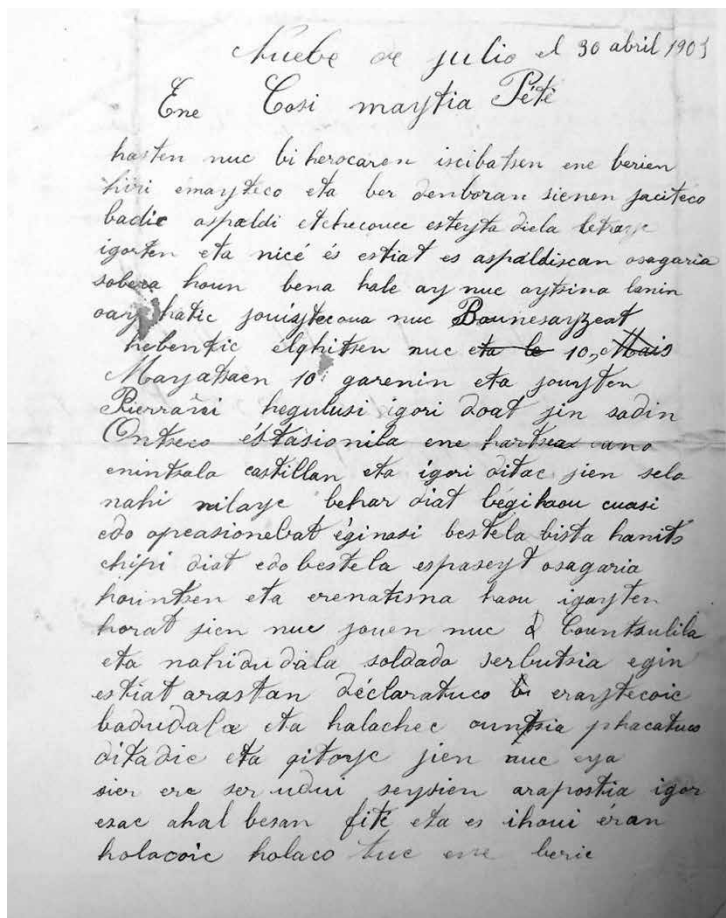 Nuebe de julio el 30 abril 1903
Ene Cosi maytia Pété
hasten nuc bi herocaren iscibatsen ene berien
hiri emayteco eta ber denboran sienen jaciteco
badic aspaldi etchecouec esteyta diela letraye
igorten eta nicé és estiat es aspaldiscan osagaria
sobera houn bena hale ay nuc aytsina lanin
oay hatic jouaytecoua nuc Bounesayzeat
hebentic élghitsen nuc eta le 10, Mais
Mayatsaen 10 garenin eta jouyten
Pierrañi hegulusi igori doat jin sadin
Ontseco éstasionila ene hartsea cano
enintsala castillan eta igori ditac jien sela
nahi nilaye behar diat begi haou cuasi
edo opeasionebat éginasi bestela bista hanits
chipi diat edo bestela espaseyt osagaria
hountsen eta erenatisna haou igayten
horat jien nuc jouen nuc Countsulila
eta nahidudala soldado serbutsia egin
estiat arastan déclaratuco bi eraytecoic
badudala eta halachec ountsia phacatuco
ditadic eta gitorye jien nuc eya
sier ere ser udui seysien arapostia igor
esac ahal besan fité eta es ihoui éran
holacoic holaco tuc ene beric